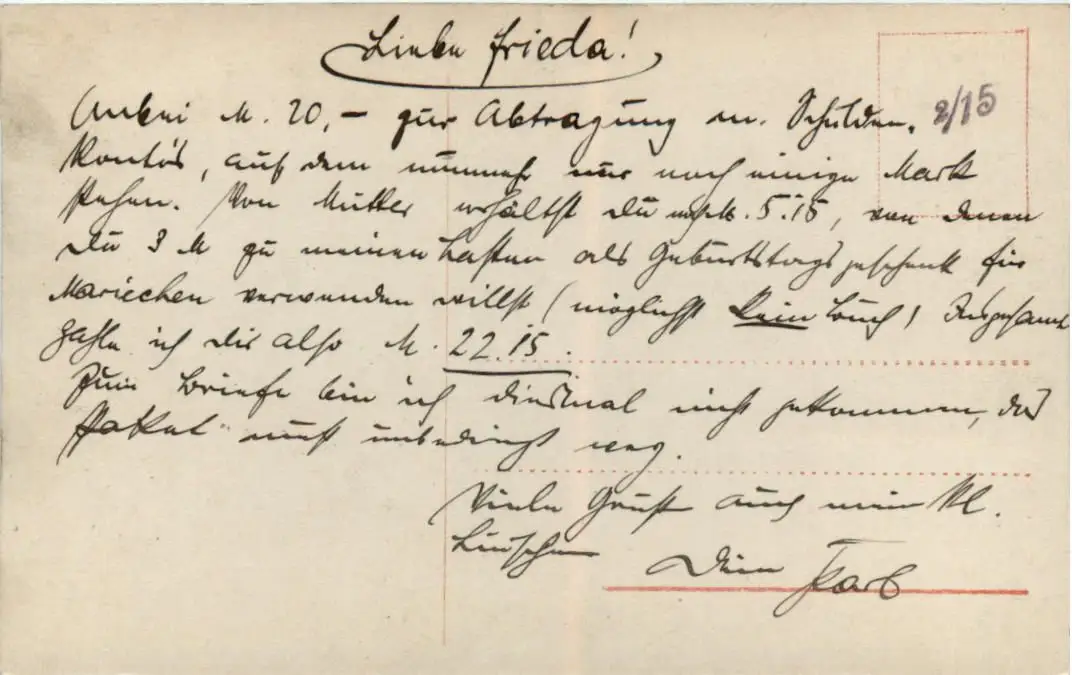 Liebe Frieda!
2/15
Anbei M. 20,- zur Abtragung m. Schulden-
kontos, auf dem nunmehr nur noch einige Mark
stehen. Von Mutter erhältst Du M. 5.15, von denen
Du 3 M zu meinen Lasten als Geburtstagsgeschenk für
Mariechen verwenden willst (möglichst kein Buch) Insgesamt
zahle ich dir also M. 22.15.
Zum Briefe bin ich diesmal nicht gekommen, das
Paket muß unbedingt weg.
Viele Grüße auch mein kl.
Dein